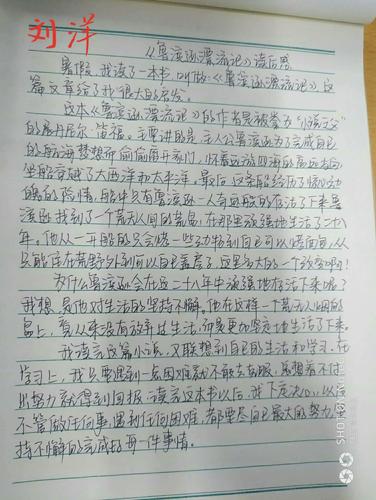 刘洋
《鲁滨逊漂流记》读后感
暑假,我读了一本书,叫做《鲁滨逊漂流记》这
篇文章给了我很大的启发。
这本《鲁滨逊漂流记》的作者是被拳为“小说之父”
的丹尼尔·笛福。主要讲的是主人公鲁滨逊为了完成自己
的航海梦想而偷偷离开家门,怀着远游四海的高远志向,
坐船穿越了大西洋和太平洋。最后这条船经历了惊心动
魄的险情,船中只有鲁滨逊一人奇迹般的存活了下来鲁
滨逊找到了一个荒无人间的荒岛,在那里顽强地生活了二十八
年。他从一开始的只会烧一些动物到自己可以烤面包,从
只能住在荒野外到可以自己盖房子,这是多大的一个改变啊!
为什么鲁滨逊会在这二十八年中顽强地存活下来呢?
我想是他对生活的坚持不懈。他在这样一个荒无人烟的
岛上,看从来没有放弃过生活,而是更加坚定地生活了下来。
我读完这篇小说,又联想到自己的生活和学习。在
学习上,我只要遇到一点困难就不敢去克服,总想着不付
出努力就得到回报。读完这本书以后,我下定决心,以后
不管做任何事,遇到任何困难,都要尽自己最大的努力,坚
持不懈的完成好每一件事情。
SHOT ON